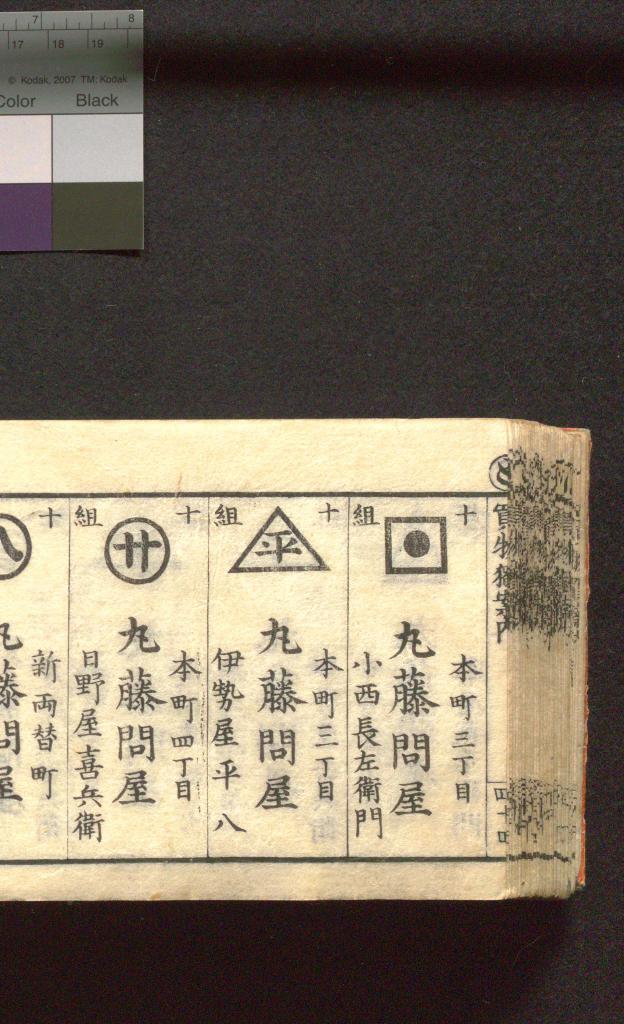 7 8
17 18 19
© Kodak, 2007 TM: Kodak
Color Black
買物獨案内
四十四
十
組
本町三丁目
丸藤問屋
小西長左衛門
十
組
平
本町三丁目
丸藤問屋
伊勢屋平八
十
組
廿
本町四丁目
丸藤問屋
日野屋喜兵衛
十
八
新両替町
丸藤問屋